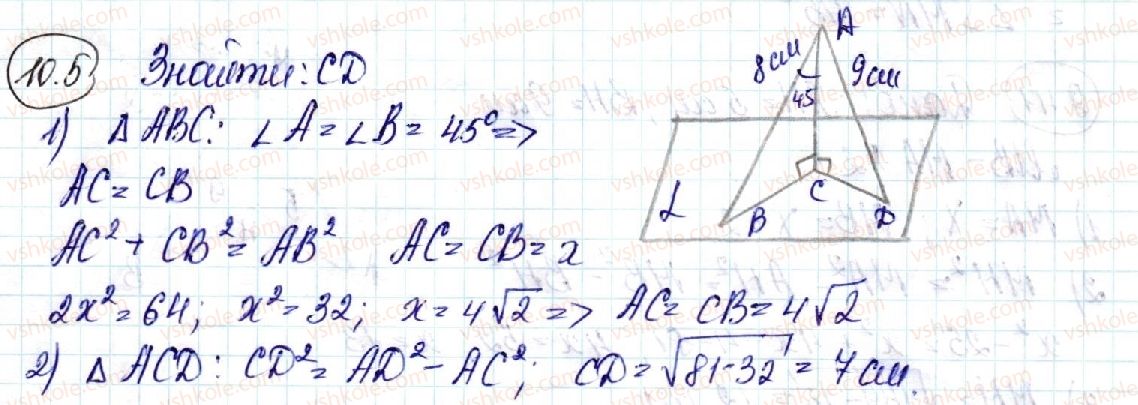 10.5 Знайти: CD
1) △ ABC: ∠A = ∠B = 45° =>
AC = CB
AC² + CB² = AB² AC = CB = x
2x² = 64; x² = 32; x = 4√2 => AC = CB = 4√2
2) △ ACD: CD² = AD² - AC²; CD = √81-32 = 7 см.
A
8 см 9 см
45
C
L B D
vshkole.com